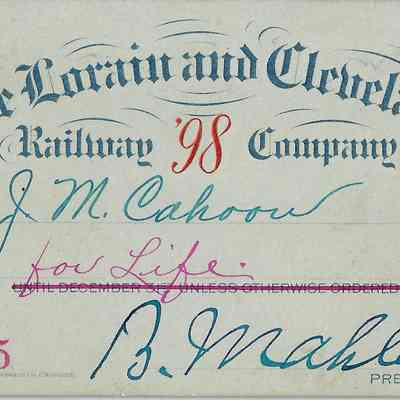 e Lorain and Clevela
Railway '98 Company
J. M. Cahoon
for Life.
UNTIL DECEMBER 31ST UNLESS OTHERWISE ORDERED
5
B. Mahle
PRE